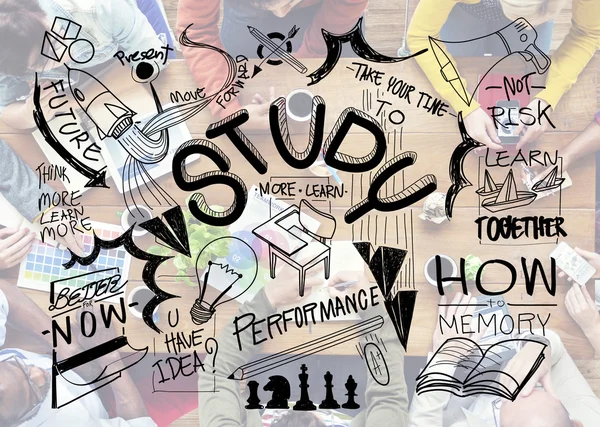 Present
FUTURE
MOVE
FORWARD
-TAKE YOUR TIME-
TO
-NOT-
RISK
STUDY
THINK
MORE
LEARN
MORE
·MORE·LEARN·
LEARN
TOGETHER
BETTER
FOR
-NOW-
U
HAVE
IDEA?
PERFORMANCE
A+
HOW
TO
MEMORY